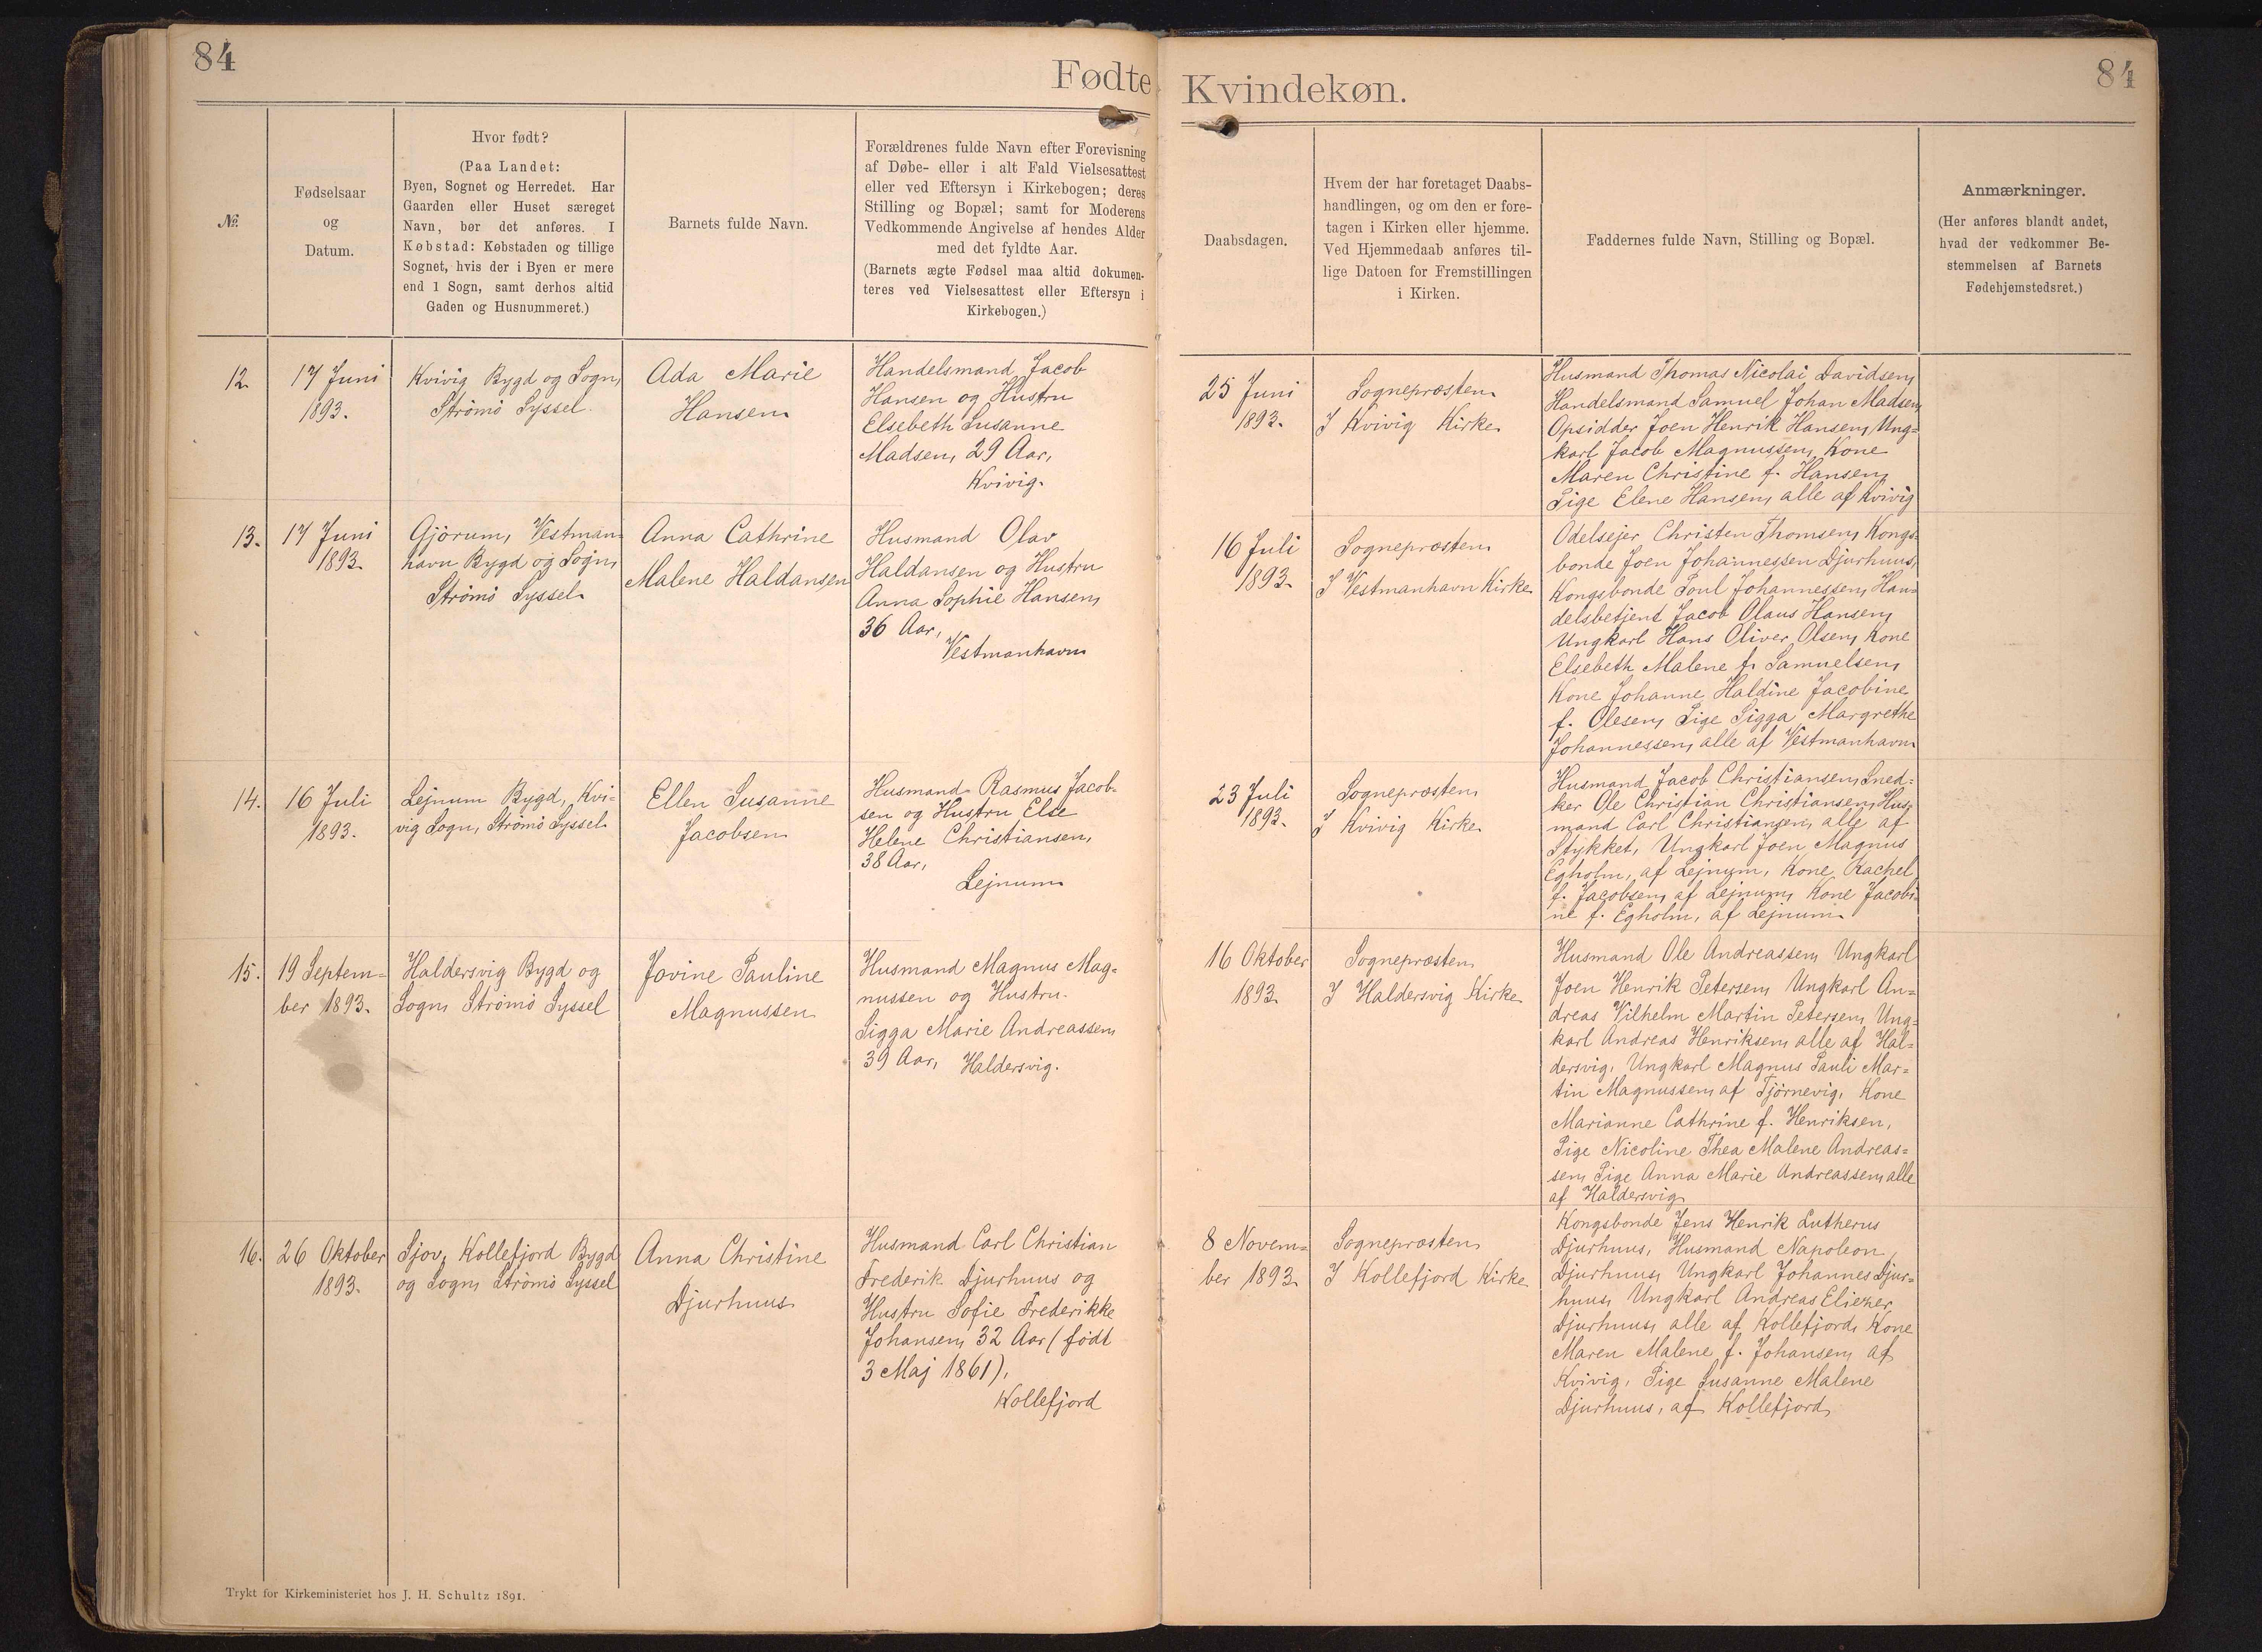 84
Fødte
Kvindekøn.
84
№
Fødselsaar
og
Datum.
Hvor født?
(Paa Landet:
Byen, Sognet og Herredet. Har
Gaarden eller Huset særeget
Navn, bør det anføres. I
Købstad: Købstaden og tillige
Sognet, hvis der i Byen er mere
end 1 Sogn, samt derhos altid
Gaden og Husnummeret.)
Barnets fulde Navn.
Forældrenes fulde Navn efter Forevisning
af Døbe- eller i alt Fald Vielsesattest
eller ved Eftersyn i Kirkebogen; deres
Stilling og Bopæl; samt for Moderens
Vedkommende Angivelse af hendes Alder
med det fyldte Aar.
(Barnets ægte Fødsel maa altid dokumen-
teres ved Vielsesattest eller Eftersyn i
Kirkebogen.)
Daabsdagen.
Hvem der har foretaget Daabs-
handlingen, og om den er fore-
tagen i Kirken eller hjemme.
Ved Hjemmedaab anføres til-
lige Datoen for Fremstillingen
i Kirken.
Faddernes fulde Navn, Stilling og Bopæl.
Anmærkninger.
(Her anføres blandt andet,
hvad der vedkommer Be-
stemmelsen af Barnets
Fødehjemstedsret.)
12.
17 Juni
1893.
Kvivig Bygd og Sogn,
Strömö Syssel.
Ada Marie
Hansen
Handelsmand Jacob
Hansen og Hustru
Elsebeth Susanne
Madsen, 29 Aar,
Kvivig.
25 Juni
1893.
Sognepræsten
I Kvivig Kirke
Husmand Thomas Nicolai Davidsen,
Handelsmand Samuel Johan Madsen,
Opsidder Joen Henrik Hansen, Ung=
karl Jacob Magnussen, Kone
Maren Christine f. Hansen,
Pige Elene Hansen, alle af Kvivig
13.
17 Juni
1893.
Gjörum, Vestman=
havn Bygd og Sogn,
Strömö Syssel.
Anna Cathrine
Malene Haldansen
Husmand Olav
Haldansen og Hustru
Anna Sophie Hansen,
36 Aar,
Vestmanhavn
16 Juli
1893.
Sognepræsten
I Vestmanhavn Kirke
Odelsejer Christen Thomsen, Kongs=
bonde Joen Johannessen Djurhuus,
Kongsbonde Poul Johannessen, Han=
delsbetjent Jacob Olaus Hansen,
Ungkarl Hans Oliver Olsen, Kone
Elsebeth Malene f. Samuelsen,
Kone Johanne Haldine Jacobine
f. Olesen, Pige Sigga Margrethe
Johannessen, alle af Vestmanhavn
14.
16 Juli
1893.
Lejnum Bygd, Kvi=
vig Sogn, Strömö Syssel.
Ellen Susanne
Jacobsen
Husmand Rasmus Jacob=
sen og Hustru Else
Helene Christiansen,
38 Aar,
Lejnum
23 Juli
1893.
Sognepræsten
I Kvivig Kirke
Husmand Jacob Christiansen, Sned=
ker Ole Christian Christiansen, Hus=
mand Carl Christiansen, alle af
Stykket, Ungkarl Joen Magnus
Egholm, af Lejnum, Kone Rachel
f. Jacobsen, af Lejnum, Kone Jacobi=
ne f. Egholm, af Lejnum.
15.
19 Septem=
ber 1893.
Haldersvig Bygd og
Sogn, Strömö Syssel
Jovine Pauline
Magnussen
Husmand Magnus Mag=
nussen og Hustru
Sigga Marie Andreassen,
39 Aar, Haldersvig.
16 Oktober
1893.
Sognepræsten
I Haldersvig Kirke
Husmand Ole Andreassen, Ungkarl
Joen Henrik Petersen, Ungkarl An=
dreas Vilhelm Martin Petersen, Ung=
karl Andreas Henriksen, alle af Hal=
dersvig, Ungkarl Magnus Pauli Mar=
tin Magnussen, af Tjörnevig, Kone
Marianne Cathrine f. Henriksen,
Pige Nicoline Thea Malene Andreas=
sen, Pige Anna Marie Andreassen, alle
af Haldersvig
16.
26 Oktober
1893.
Sjov, Kollefjord Bygd
og Sogn, Strömö Syssel
Anna Christine
Djurhuus
Husmand Carl Christian
Frederik Djurhuus og
Hustru Sofie Frederikke
Johansen, 32 Aar (födt
3 Maj 1861),
Kollefjord
8 Novem=
ber 1893.
Sognepræsten
I Kollefjord Kirke
Kongsbonde Jens Henrik Lutherus
Djurhuus, Husmand Napoleon
Djurhuus, Ungkarl Johannes Djur=
huus, Ungkarl Andreas Eliezer
Djurhuus, alle af Kollefjord, Kone
Maren Malene f. Johansen, af
Kvivig, Pige Susanne Malene
Djurhuus, af Kollefjord,
Trykt for Kirkeministeriet hos J. H. Schultz 1891.